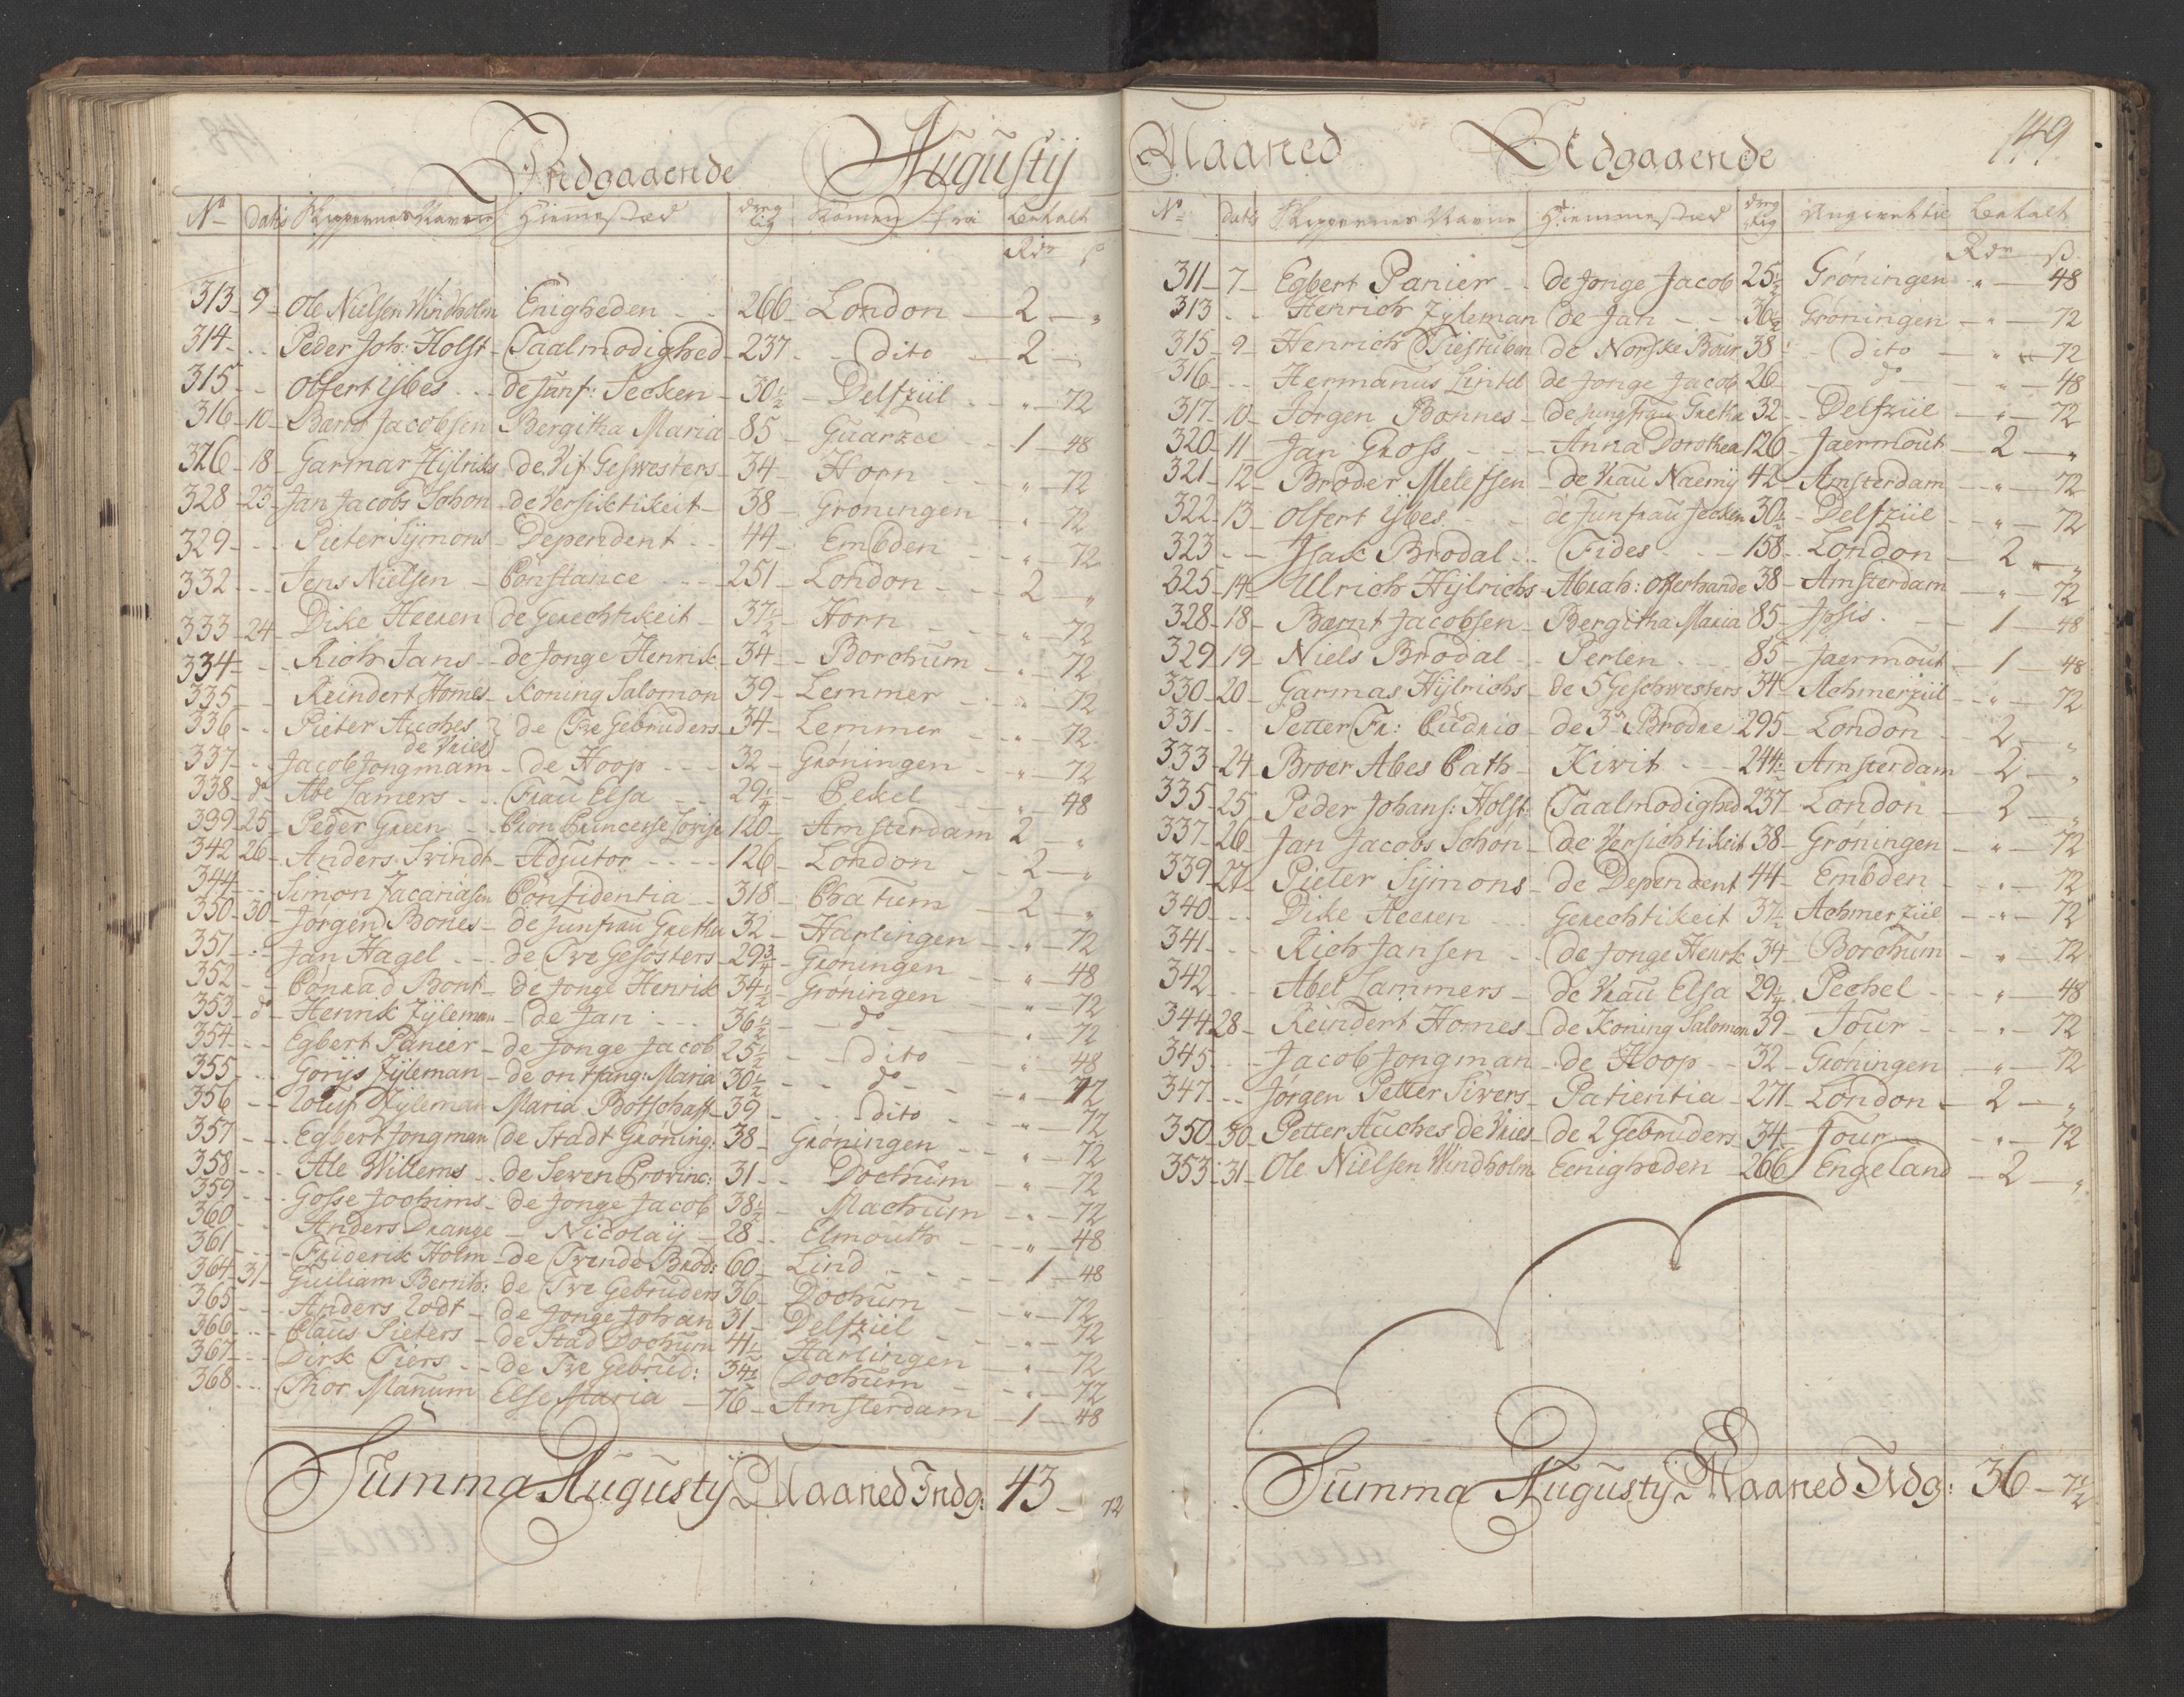 Indgaaende Augustij
No Datis Skippernes Navne Hiemmestæd Dreg tig Komen fra Betalt
Rdr ß
313 - 9 - Ole Nielsen Windholm Enigheden - - 266 - London - 2 - "
314 - - - Peder Joh: Holst - Taalmodighed - 237 - - dito - 2 -
315 - - Olfert Ijbes - - de Junf: Jecken - 30 1/2 - Delfziil - - " - 72
316 - 10 - Barnt Jacobsen Bergitha Maria - 85 - Guarzee - - 1 - 48
326 - 18 - Garmar Hijlrichs de Vif Geswesters - 34 - Horn - - " - 72
328 - 23 - Jan Jacobs Schon - de Versiktikeit - 38 - Groningen - - " - 72
329 - - - Pieter Sijmons - Dependent - - 44 - Embden - - " - 72
332 - - - Jens Nielsen - Constance - - - 251 - London - - - 2 - "
333 - 24 - Dike Heeren de Gerechtikeit - 37 1/2 - Horn - - - " - 72
334 - - - Rich Jans - - de Jonge Henrik - 34 - - Borchum - " - 72
335 - - Reindert Homes - Koning Salomon 39 - Lemmer - - " - 72
336 - - Pieter Auches de Vries de Tve Gebruders - 34 - Lemmer - - " - 72
337 - - Jacob Jongmam - de Hoop - - - 32 - Gröningen - " - 72
338 - do - Abe Lamers - - Frau Elsa - - 29 1/4 - Pekel - - " - 48
339 - 25 - Peder Green - Cron Princesse Lovise 120 - Amsterdam 2 - "
342 - 26 - Anders Svindt - Adjutor - - - - 126 - London - - 2 - "
344 - - - Simon Zacariasen Confidentia - - 318 - Chatum - 2 - "
350 - 30 - Jörgen Bones - de Junfrau Grethe 32 - Harlingen - " - 72
351 - - - Jan Hagel - - - de Tve Gesösters - 29 3/4 - Gröningen - " - 48
352 - - Conrad Bont - de Jonge Henrik 34 1/2 - Gröningen - " - 72
353 - do - Henrik Zijleman - de Jan - - - 36 1/2 - - do - - " - 72
354 - - Egbert Panier - de Jonge Jacob 25 1/2 - - dito - " - 48
355 - - - Gorijs Zijleman - de ontfang: Maria 30 1/2 - - do - - " - 72
356 - - - Zijleman Maria Botschaft - 39 - - - dito - " - 72
357 - - - Egbert Jongman de Stadt Gröning: 38 - Gröningen - - " - 72
358 - - - Ale Willems - - de Seven Provinc: 31 - - Dochum - " - 72
359 - - - Gosse Jochims - de Jonge Jacob 38 1/2 - Machum - " - 72
360 - - Anders Drange - Nicolaij - 28 - - Elmouth - " - 48
361 - - - Friderik Holm - de Tvende Bröd: 60 - Lind - - - 1 - 48
364 - 31 - Guiliam Bernth: de Tve Gebruders 36 - Dochum - - " - 72
365 - - - Anders Zodt - de Jonge Johan 31 - Delfziil - - " - 72
366 - - - Claus Pieters - de Stad Dochum 41 1/2 Harlingen - " - 72
367 - - - Dirk Tiers - - de Tve Gebrud: 34 1/2 Dochum - - " - 72
368 - - - Thor Manum Else Maria - 76 - Amsterdam - 1 - 48
Summa Augustij Maaned Indg: 43 - 72
Maaned Udgaaende 149
No Datis Skippernes Navne Hiemmestæd Dreg tig Angiver til Betalt
Rdr ß
311 - 7 - Egbert Panier - - de Jonge Jacob 25 1/2 Gröningen - " - 48
313 - - Henrich Zijleman de Jan - - 36 1/2 Gröningen - " - 72
315 - 9 - Henrich Tiestuben de Norske Böir 38 - - dito - " - 72
316 - - - Hermanus Lintel de Jonge Jacob 26 - - do - " - 48
317 - 10 - Jörgen Bonnes - de Jungfrau Grethe 32 - - Delfziil - " - 72
320 - 11 - Jan Gross - - - Anna Dorothea 126 - Jaermout - 2 - "
321 - 12 - Broder Melessen - de Vrau Naemij 42 - Amsterdam - " - 72
322 - 13 - Olfert Ijbes - - de Junfrau Jecken 30 1/2 - Delfziil - " - 72
323 - - - Isak Brodal - - Fides - - - 158 - London - 2 - "
325 - 14 - Ulrich Hijlrichs - Abrah: Offerhande 38 - Amsterdam - " - 72
328 - 18 - Bærnt Jacobsen - Bergitha Maria 85 - Ipsis - - 1 - 48
329 - 19 - Niels Brodal - - Perlen - - - 85 - Jaermout - 1 - 48
330 - 20 - Garmas Hijlrichs - de 5 Geschwesters 34 - Achmerziil - " - 72
331 - - Petter Fr: Cudrio - de 3 Brodre 295 - London - 2 - "
333 - 24 - Broer Abes Cath - Kivit - - 244 1/2 Amsterdam - 2 - "
335 - 25 - Peder Johans: Holst: Taalmodighed 237 - London - 2 - "
337 - 26 - Jan Jacobs Schön - de Versichtikeit 38 - Groningen - " - 72
339 - 27 - Pieter Sijmons - de Dependent 44 - Embden - " - 72
340 - - - Dike Heeren - - Gerechtikeit 37 1/2 Achmerziil - " - 72
341 - - - Rich Jansen - - de Jonge Henrk 34 - Borchum - " - 72
342 - - Abel Lammers - de Vrau Elsa 29 1/4 - Pechel - - " - 48
344 - 28 - Reindert Homes - de Koning Salomon 39 - Jour - - " - 72
345 - - Jacob Jongman - de Hoop - - 32 - Gröningen - " - 72
347 - - - Jörgen Petter Sivers - Patientia - 271 - London - 2 - "
350 - 30 - Petter Auches de Vries - de 2 Gebruders - 34 - Jour - " - 72
353 - 31 - Ole Nielsen Windholm Eenigheden - 266 Engeland - 2 - "
Summa Augustij Maaned Udg: 36 - 72